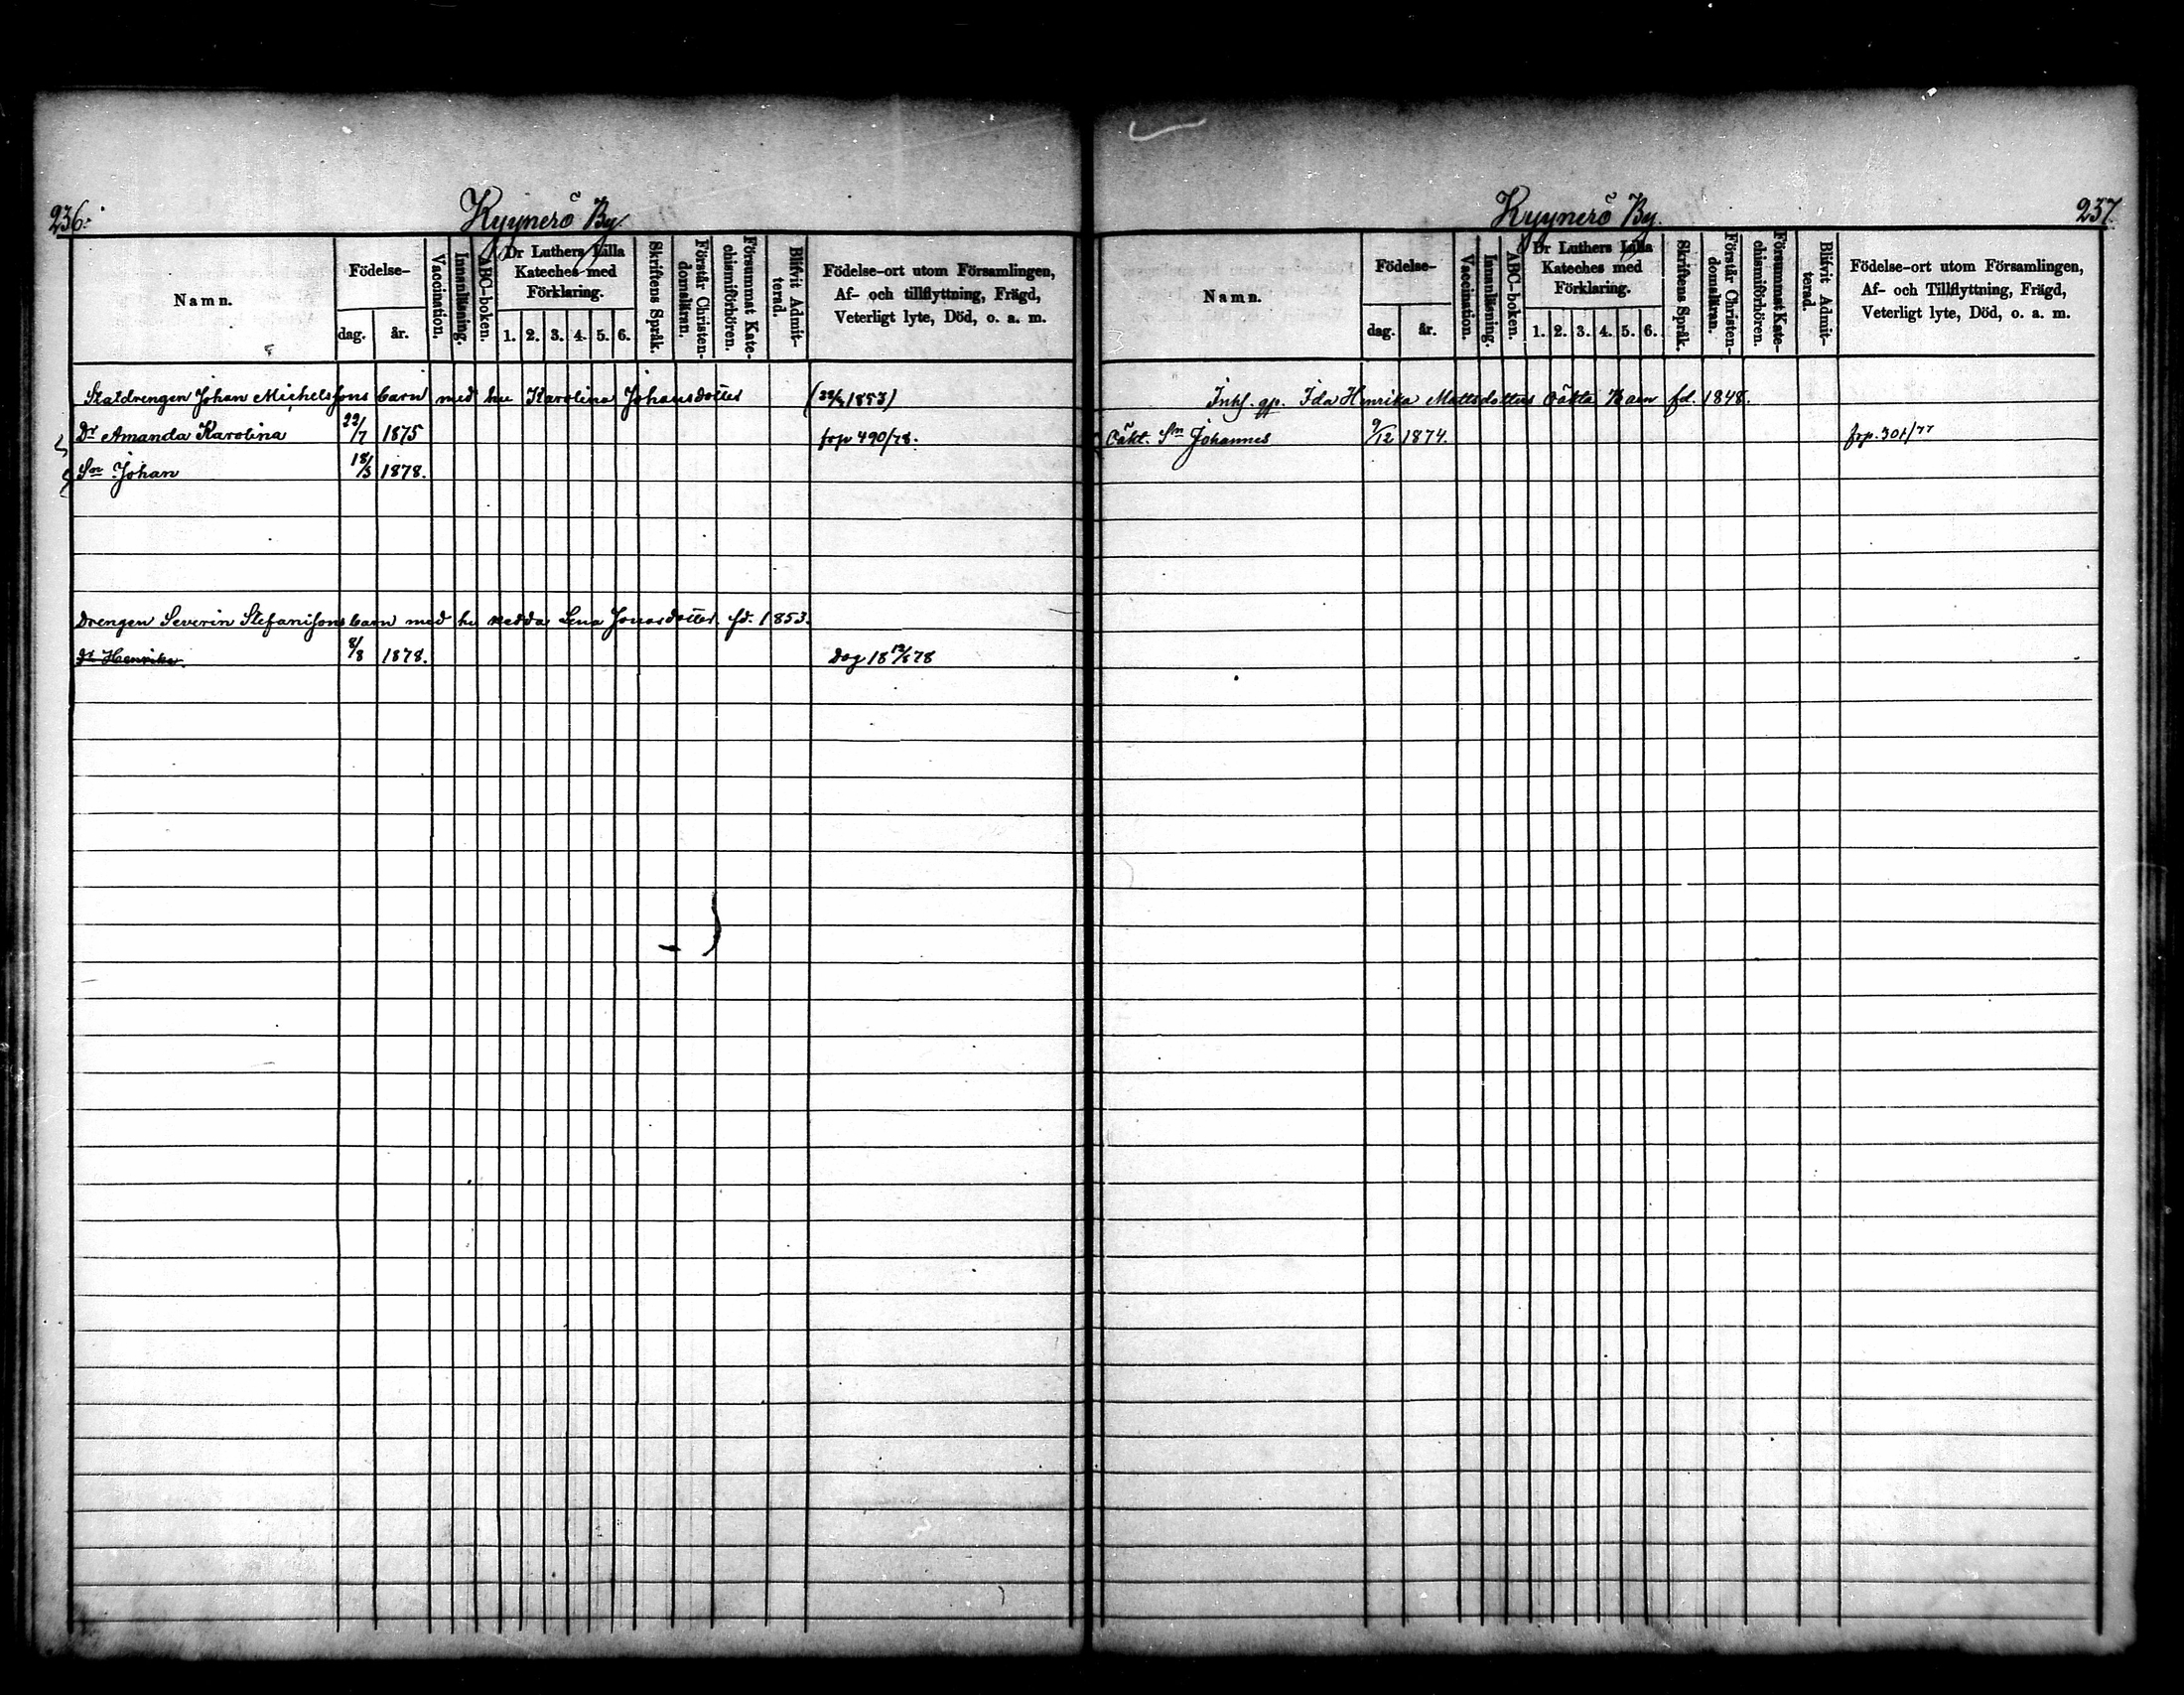 236.
Kyynerö By
Namn.
Födelse-
dag.
år.
Vaccination.
Innanläsning.
ABC-boken.
Dr Luthers Lilla
Kateches med
Förklaring.
1. 2. 3. 4. 5. 6.
Skriftens Språk.
Förstår Christen-
domsläran.
Försummat Kate-
chismiförhören.
Blifvit Admit-
terad.
Födelse-ort utom Församlingen,
Af- och tillflyttning, Frägd,
Veterligt lyte, Död, o. a. m.
Johan Michelssons barn med hu Karolina Johansdotter 1853)
Dr Amanda Karolina 22/7 1875 frp 490/78.
Sn Johan 18/3 1878.
Drengen Severin Stefanssons barn med hu Lena Jonasdotter fd. 1853.
Dr Henrika. 8/8 1878. Dog 18 12/8 78
237.
Kyynerö By.
Namn.
Födelse-
dag.
år.
Vaccination.
Innanläsning.
ABC-boken.
Dr Luthers Lilla
Kateches med
Förklaring.
1. 2. 3. 4. 5. 6.
Skriftens Språk.
Förstår Christen-
domsläran.
Försummat Kate-
chismiförhören.
Blifvit Admit-
terad.
Födelse-ort utom Församlingen,
Af- och Tillflyttning, Frägd,
Veterligt lyte, Död, o. a. m.
Inhs. qp. Ida Henrika Mattsdotters Oäkta Barn fd. 1848.
Oäkt. Sn Johannes 9/12 1874. frp. 301/77